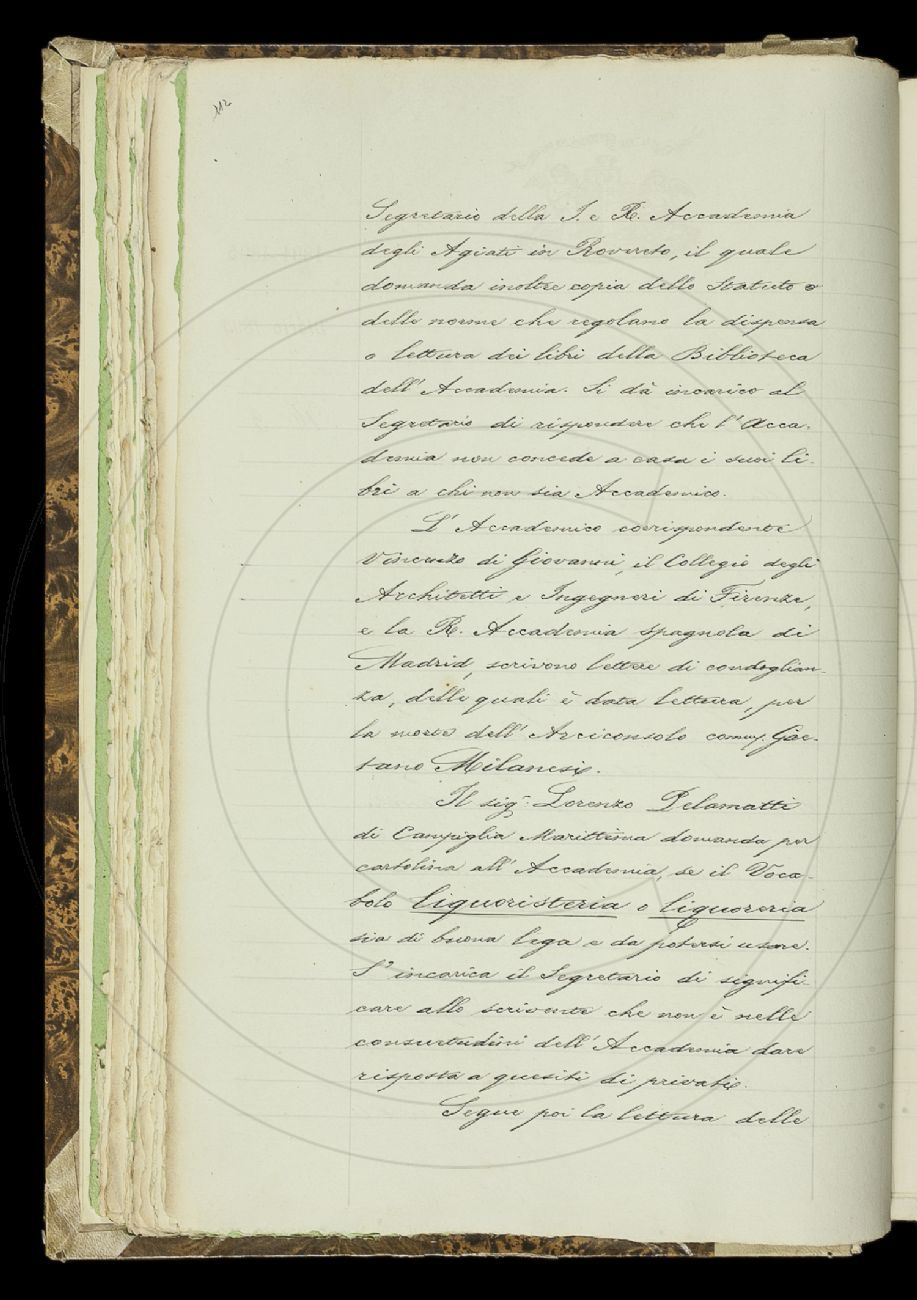 112
Segretario della I. e R. Accademia
degli Agiati in Rovereto, il quale
domanda inoltre copia dello Statuto o
delle norme che regolano la dispensa
o lettura dei libri della Biblioteca
dell' Accademia. Si dà incarico al
Segretario di rispondere che l' Acca-
demia non concede a casa i suoi li-
bri a chi non sia Accademico.
L' Accademico corrispondente
Vincenzo di Giovanni, il Collegio degli
Architetti e Ingegneri di Firenze,
e la R. Accademia spagnola di
Madrid, scrivono lettere di condoglian-
za, delle quali è data lettura, per
la morte dell' Arciconsolo comm. Gae-
tano Milanesi.
Il sig. Lorenzo Pelamatti
di Campiglia Marittima domanda per
cartolina all' Accademia, se il Voca-
bolo liquoristeria o liquoreria
sia di buona lega e da potersi usare.
S' incarica il Segretario di signifi-
care allo scrivente che non è nelle
consuetudini dell' Accademia dare
risposta a quesiti di privati.
Segue poi la lettura delle